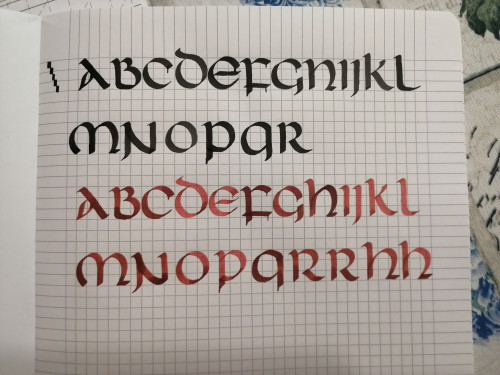 ABCDEFGHIJKL
MNOPQR
ABCDEFGHIJKL
MNOPQRRHH